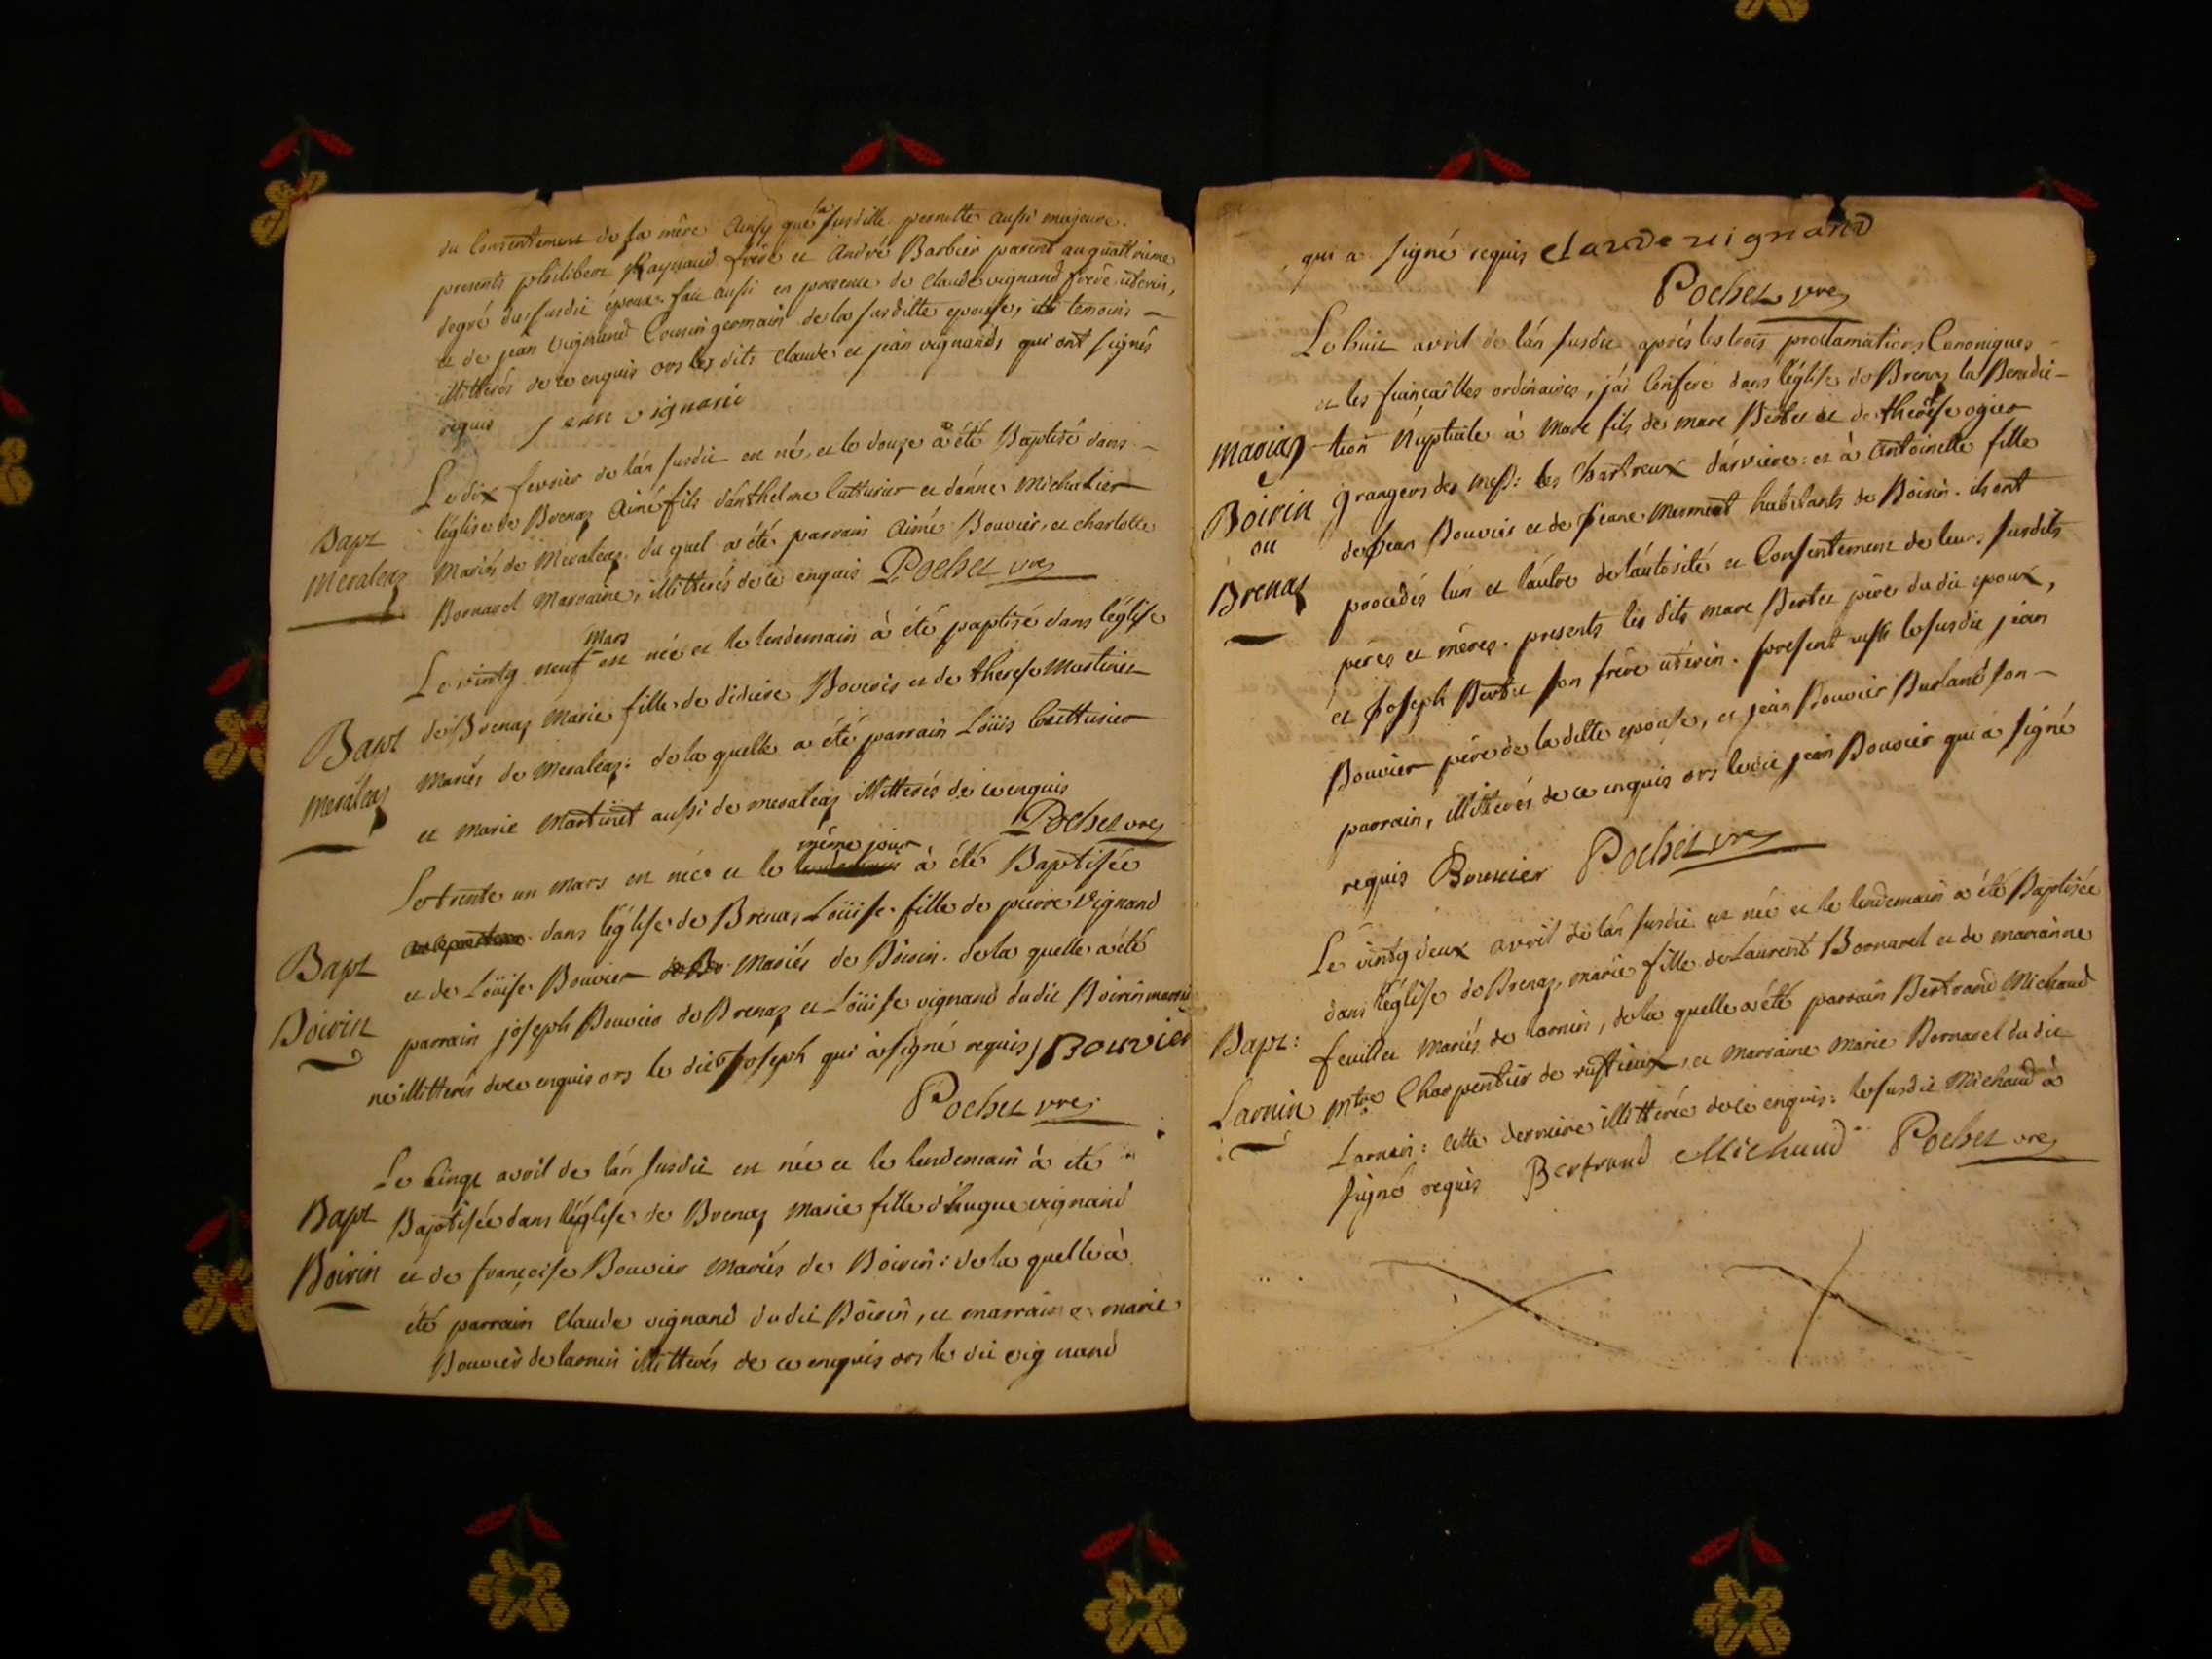 du Consentement de sa mère Ainsy que la susditte pernette aussi majeure.
presents philibert Raynaud frère et André Barbier parent au quattrieme
degré du susdit époux. fait aussi en presence de Claude vignand frère uterin,
et de jean vignand Cousin germain de la susditte epouse, temoins
illitterés de ce enquis ors les dits Claude et jean vignands qui ont signés
requis jean vignand
Le dix fevrier de l'an susdit est né, et le douze a été Baptisé dans
Bapt
l'église de Brenaz Aimé fils d'anthelme Cutturier et d'anne Michalier
Meraleaz
Mariés de Meraleaz. du quel a été parrain Aimé Bouvier, et charlotte
Bornarel Marraine, illitterés de ce enquis Pochet vre
Le vintg neuf mars est née et le lendemain à été paptisé dans l'églisse
Bapt
de Brenaz Marie fille de didiere Bouvois et de therese Martinet
meraleaz
Mariés de Meraleaz: de la quelle a été parrain Loüis Coutturier
et Marie Martinet aussi de meraleaz illitterés de ce enquis
Pochet vre
Le trente un mars est née et le même jour à été Baptisée
Bapt
dans l'églisse de Brenaz Loüise fille de pierre Vignand
et de Loüise Bouvier Mariés de Boirin. de la quelle a été
Boirin
parrain joseph Bouvier de Brenaz et Loüise vignand dudit Boirin marrai
ne illitterés de ce enquis ors le dit Joseph qui à signé requis j Bouvier
Pochet vre
Le Cinqt avril de l'an susdit est née et le lendemain à été
Bapt
Baptisée dans l'église de Brenaz Marie fille d'hugue vignand
Boirin
et de françoise Bouvier Mariés de Boirin: de la quelle à
été parrain Claude vignand dudit Boirin, et marraine marie
Bouvier de larnin illitterés de ce enquis ors le dit vignand
qui a signé requis claude vignand
Pochet vre
Le huit avril de l'an susdit après les trois proclamations Canoniques
et les fiançailles ordinaires, j'ai Conferé dans l'église de Brenaz la Benedic-
mariag
tion Nuptiale à Marc fils de marc Bertet et de therèse ogier
Boirin
grangers des Mess: les Chartreux d'arviere: et à Antoinette fille
ou
de jean Bouvier et de jeane Mermet habitants de Boirin. ils ont
Brenaz
procedés l'un et l'autre de l'autosité et Consentement de leurs susdits
peres et mères. presents les dits marc Bertet père du dit epoux,
et Joseph Bertet son frère utérin. present aussi le susdit jean
Bouvier père de la ditte epouse, et jean Bouvier Burland son
parrain, illitterés de ce enquis ors ledit jean Bouvier qui a signé
requis Bouvier Pochet vre
Le vintg deux avril de l'an susdit est née et le lendemain a été Baptisée
dans l'église de Brenaz, marie fille de Laurent Bornarel et de marianne
Bapt:
feuillet Mariés de larnin, de la quelle a été parrain Bertrand Michaud
Larnin
Mtre Charpentier de ruffieux, et Marraine Marie Bornarel du dit
Larnin: cette derniere illitterée de ce enquis: le susdit Michaud à
signé requis Bertrand Michaud Pochet vre